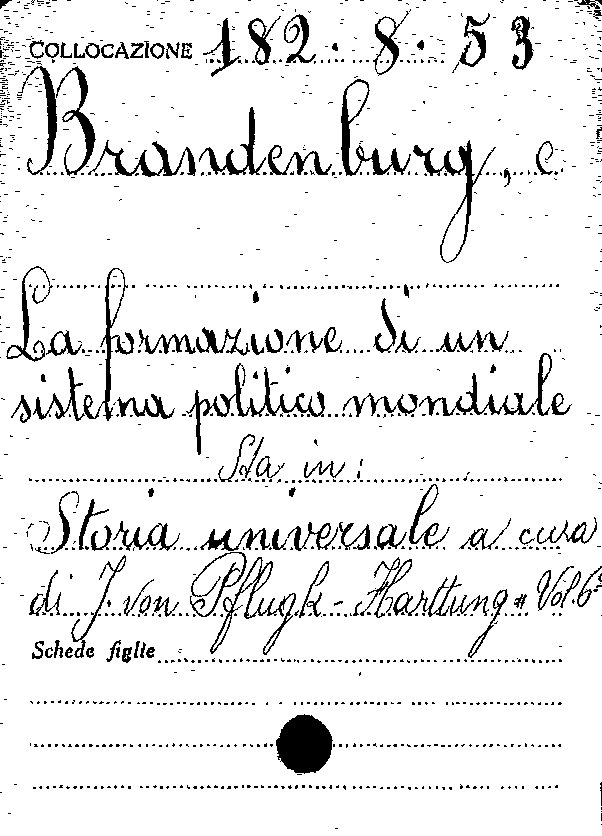 COLLOCAZIONE 182. 8. 53
Brandenburg, C
La formazione di un
sistema politico mondiale
Sta in:
Storia universale a cura
di J. von Pflugk-Harttung" Vol. 6°
Schede figlie